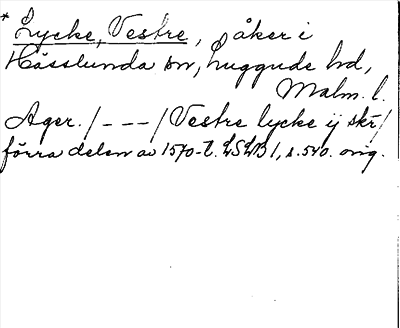 * Lycke, Vestre, åker i
Hässlunda sn, Luggude hd,
Malm. l.
Ager. / - - - / Vestre lycke ij skr /
förra delen av 1570-t. LSLB 1, s. 540. orig.